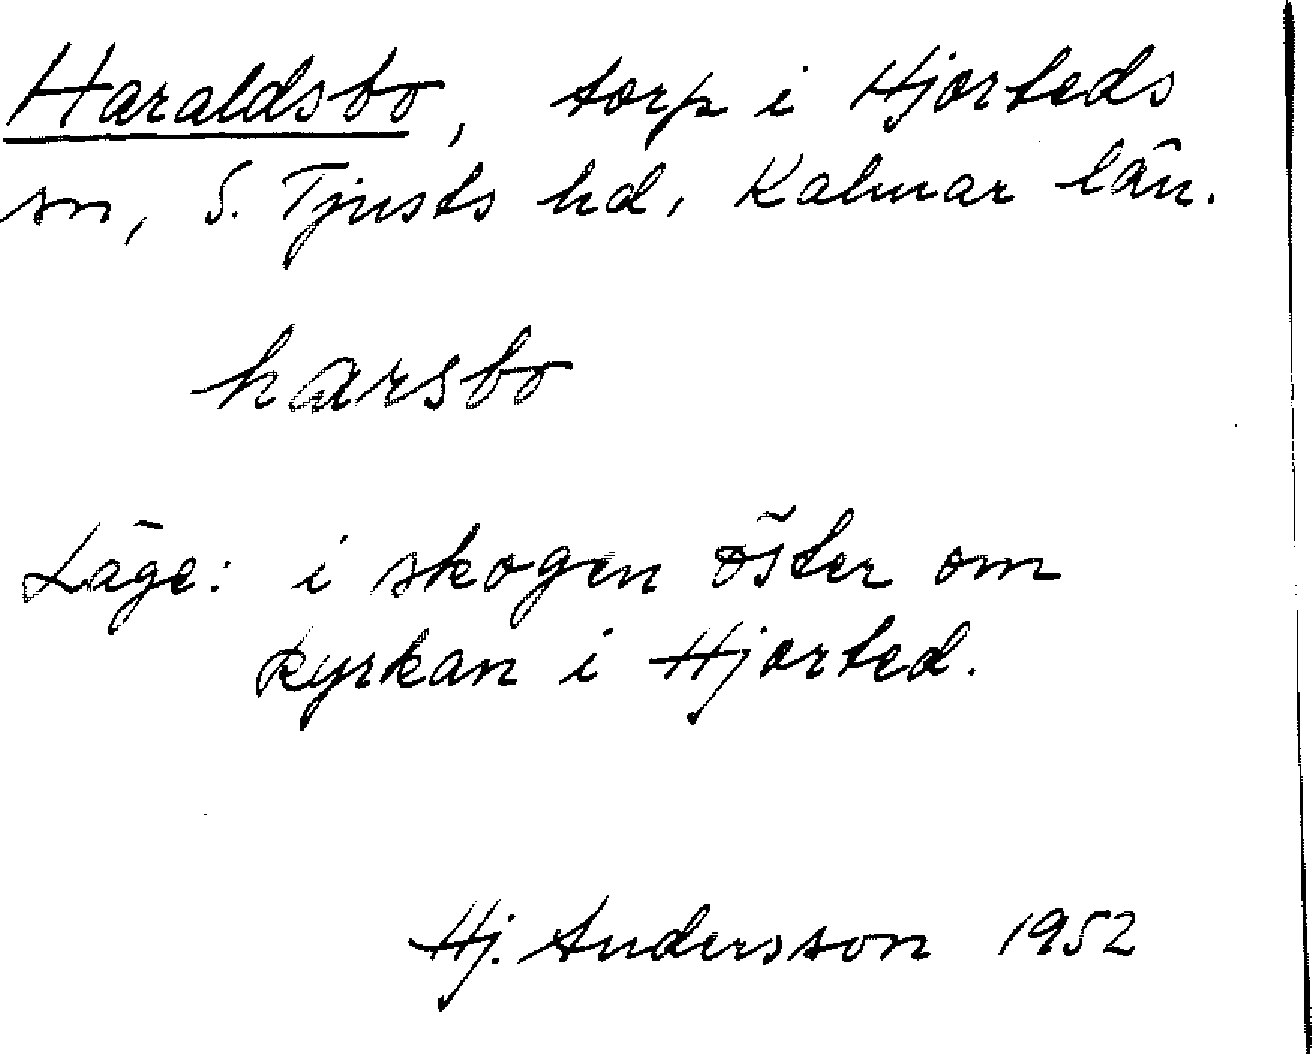 Haraldsbo, torp i Hjorteds
sn, S. Tjusts hd, Kalmar län.
harsbo
Läge: i skogen öster om
kyrkan i Hjorted.
Hj. Andersson 1952